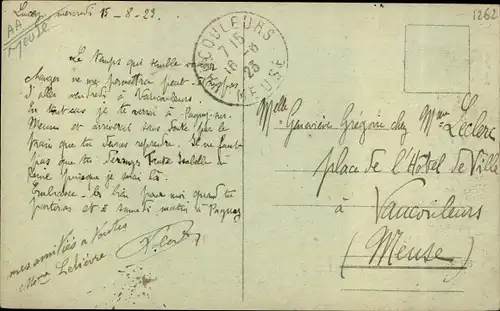 mercredi 15-8-23.
AA
Meuse
1262
VAUCOULEURS
7 15
16 - 8
23
MEUSE
Le temps qui semble vouloir
changer ne me permettra peut-être pas
d'aller vendredi à Vaucouleurs
En tout cas je te verrai à Pagny-sur-
Meuse et arriverai sans doute par le
train que tu devras reprendre. Il ne faut
pas que tu déranges Tante Isabelle
puisque je serai là.
Embrasse-les bien pour moi quand tu
partiras et à samedi matin à Pagny
mes amitiés à Toutes
Mme Lelièvre
Melle Geneviève Grégoire chez Mme Leclerc
place de l'Hôtel de Ville
à
Vaucouleurs
(Meuse)